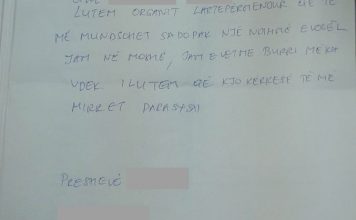 LUTEM ORGANIT LARTEPËRMENDUR QË TË
MË MUNDSOHET SADOPAK NJË NDIHMË E VOGËL
JAM NË MOSHË, JAM E VETME BURRI ME KA
VDEK I LUTEM QË KJO KERKESË TË ME
MIRRET PARASYSH
PRESHEVË